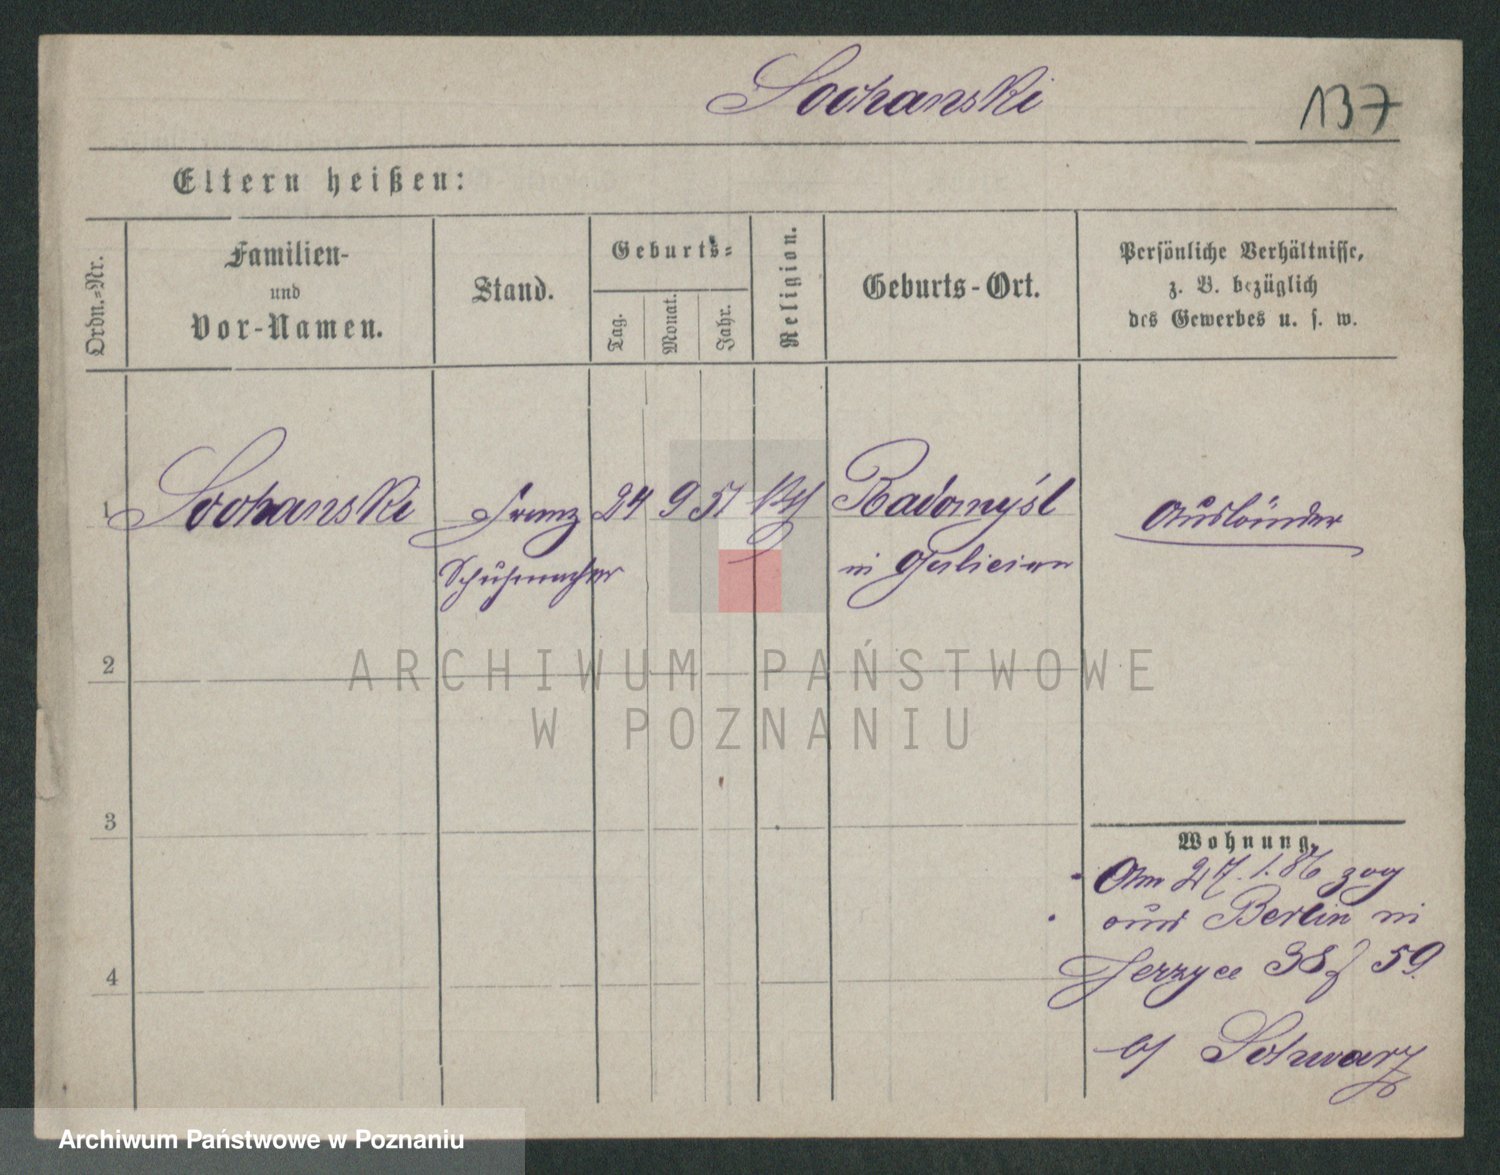 Sochanski
137
Eltern heißen:
Ordn.-Nr.
Familien-
und
Vor-Namen.
Stand.
Geburts-
Tag.
Monat.
Jahr.
Religion.
Geburts-Ort.
Persönliche Verhältnisse,
z. B. bezüglich
des Gewerbes u. s. w.
1
Sochanski
Franz
24
9
51
Radomyśl
Ausländer
Schuhmacher
in Galicien
ARCHIWUM PAŃSTWOWE
W POZNANIU
2
3
4
Wohnung.
Am 27.1.86 zog
aus Berlin in
Jerzyce 38 59.
b/ Schwarz
Archiwum Państwowe w Poznaniu